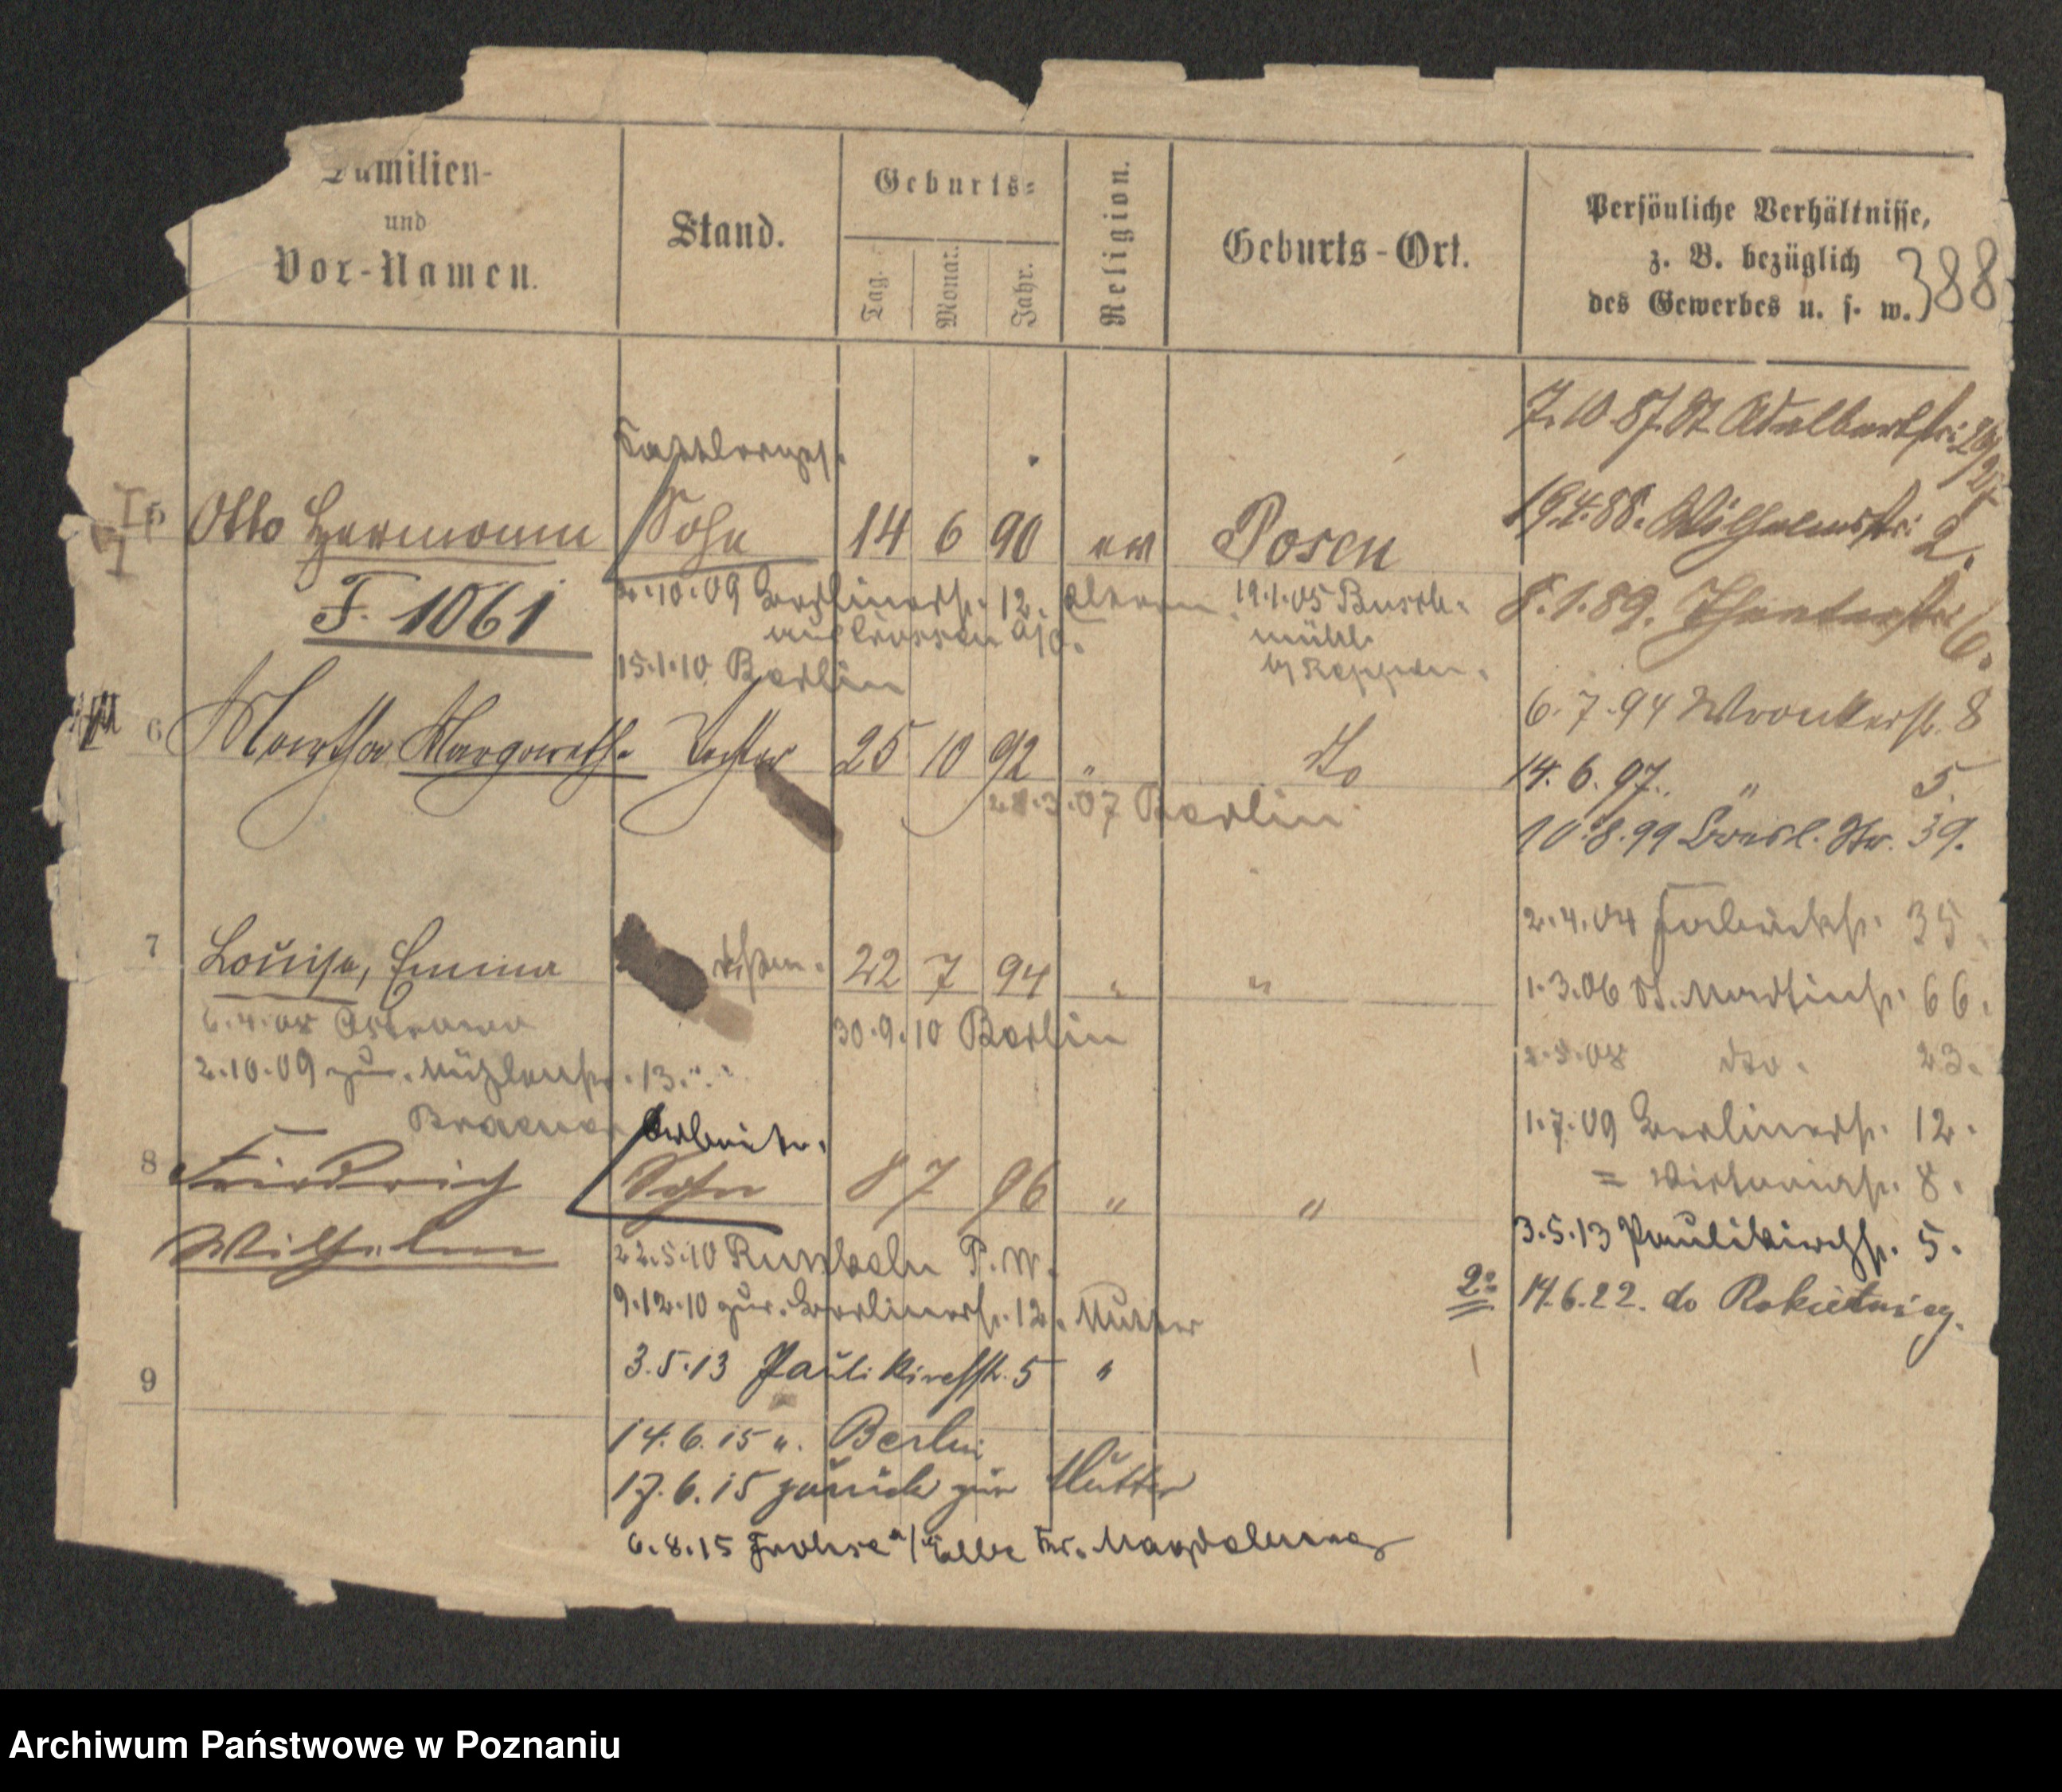 Familien-
und
Vor-Namen.
Stand.
Geburts-
Tag.
Monat.
Jahr.
Religion.
Geburts-Ort.
Persönliche Verhältnisse,
z. B. bezüglich
des Gewerbes u. s. w.
388
7.10.87. St. Adalbertstr.
Sattlerges.
Otto Hermann Sohn 14 6 90 ev Posen
19.4.88. Wilhelmstr. 2.
F. 1061
2.10.09 Berlinerstr. 12. Eltern
19.1.05 Busch-
mühle
b/ Reppen.
8.1.89. Theaterstr. 6.
15.1.10 Berlin
6.7.94 Wronkerstr. 8
6 Martha Margareth. Tochter 25 10 92 " Do
14.6.97. " 5
28.3.07 Berlin
10.8.99 Bresl. Str. 39.
2.4.04 35.
7 Louise, Emma 22 7 94 " "
1.3.06 St. Martinstr. 66.
6.4.08 Ostrowo
30.9.10 Berlin
2.10.09 zur. Mühlenstr. 13.
dto. 23.
Arbeiter.
1.7.09 Berlinerstr. 12.
8 Friedrich Sohn 8 7 96 " "
= Viktoriastr. 8.
Wilhelm
3.5.13 Paulikirchstr. 5.
22.5.10 P. W.
9.12.10 zur. Berlinerstr. 12. Mutter
2° 14.6.22. do Rokietnicy.
3.5.13 Paulikirchstr. 5 "
9
14.6.15 n. Berlin
17.6.15 zurück zur Mutter
6.8.15 Frohse a/Elbe Kr. Magdeburg